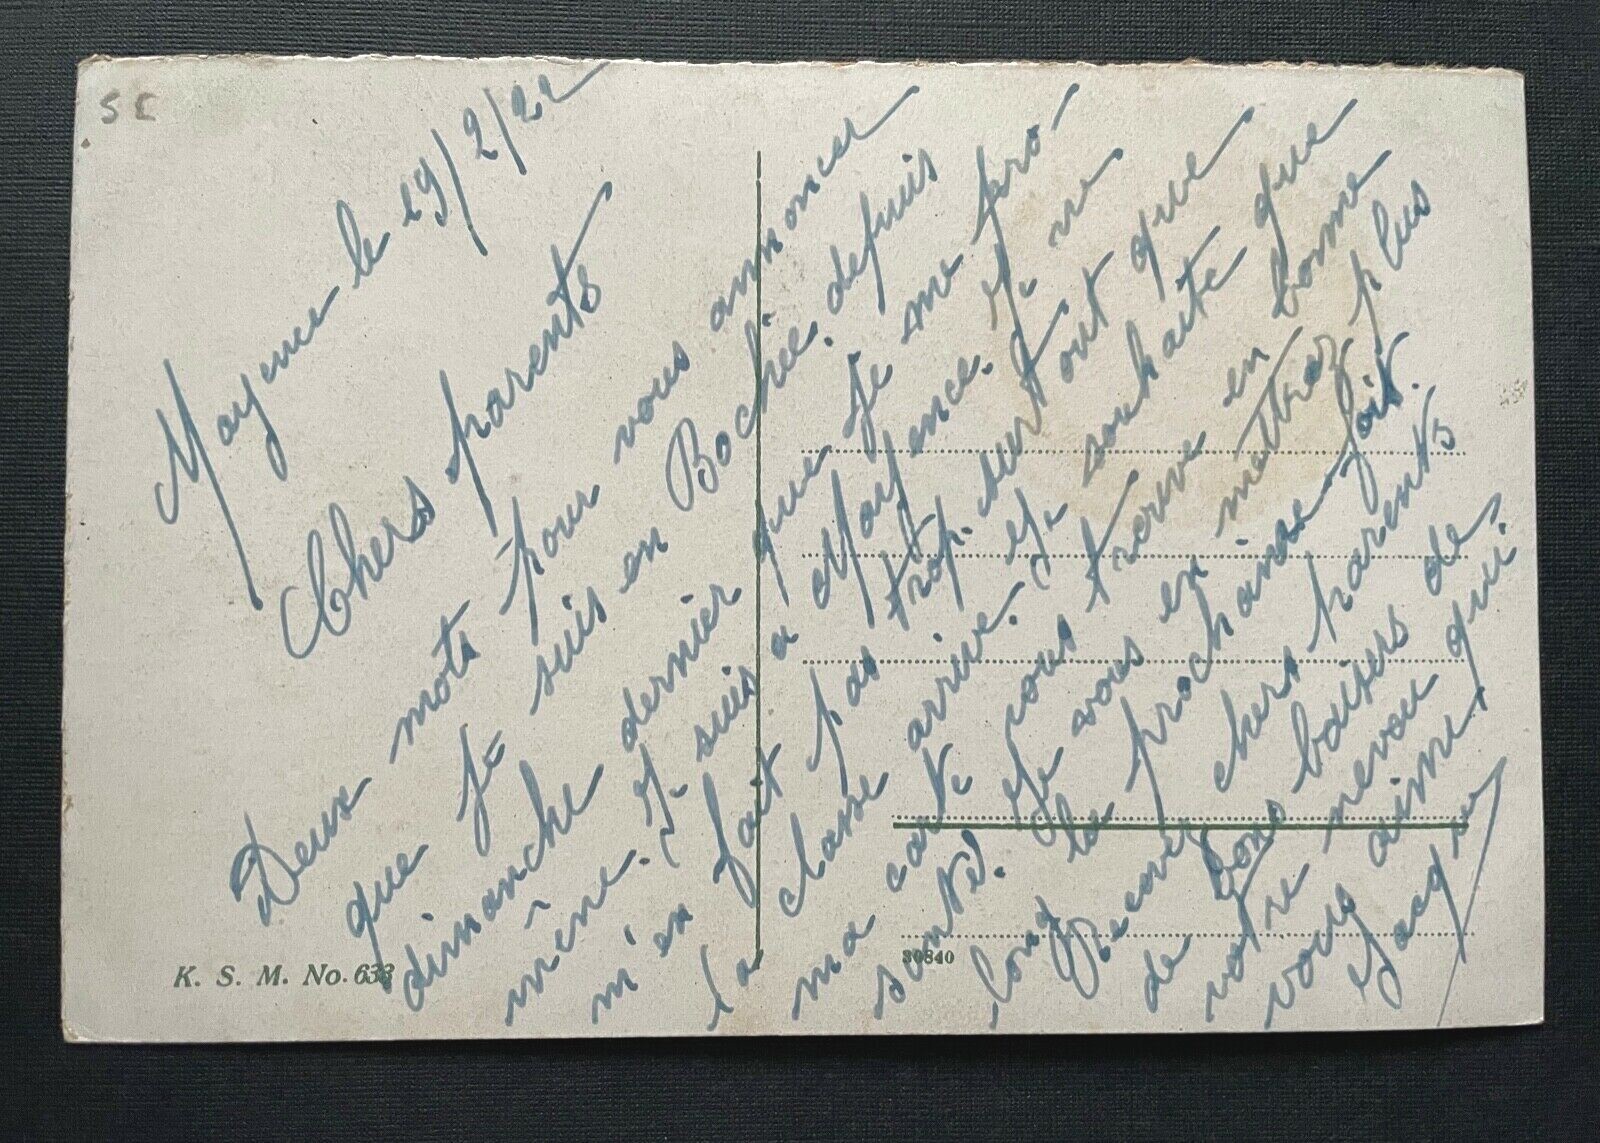 S C
Mayence le 19/2/22
Chers parents
Deux mots pour vous annoncer
que je suis en Bochie. depuis
dimanche dernier que je me pro-
mène. Je suis a Mayence. Je ne
m'en fait pas trop. surtout que
la classe arrive. Je souhaite que
ma carte vous trouve en bonne
santé. Je vous en mettrez plus
long la prochaine fois.
Recevez chers parents
de bons baisers de
votre neveu qui
vous aime.
Jacques
K. S. M. No. 633
30840